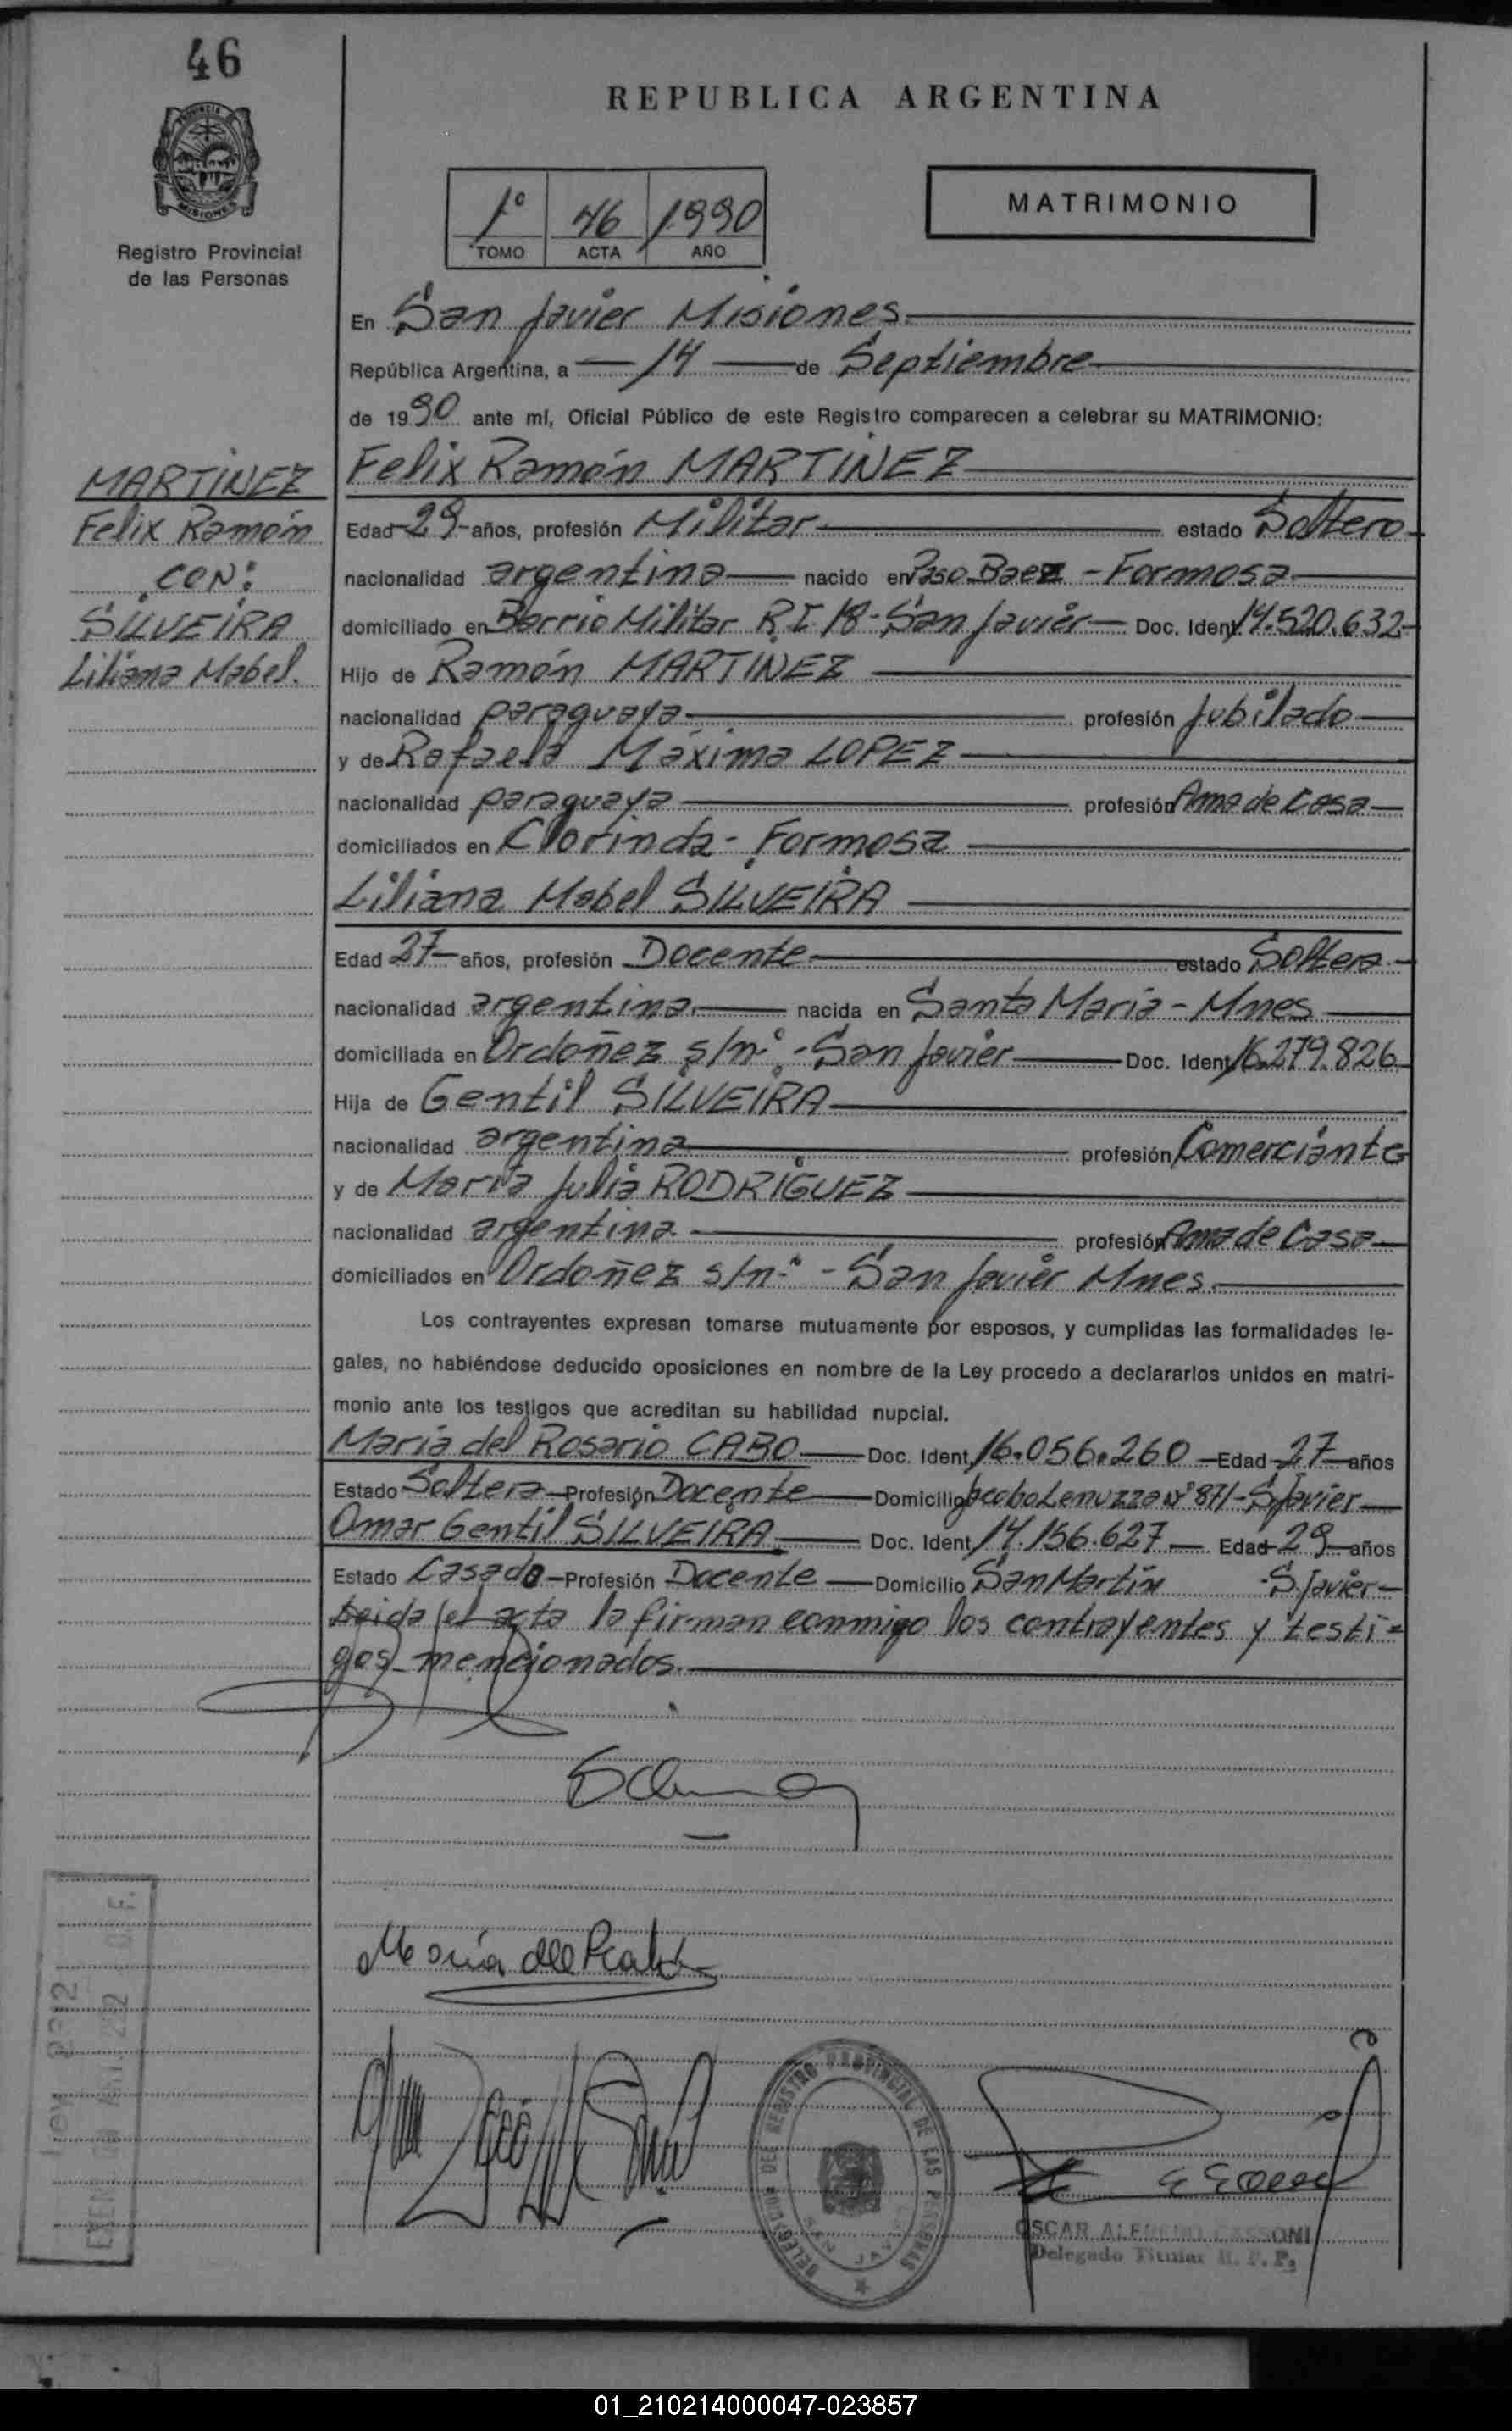 46
PROVINCIA DE
MISIONES
Registro Provincial
de las Personas
REPUBLICA ARGENTINA
1° 46 1990
TOMO ACTA AÑO
MATRIMONIO
En San Javier Misiones
República Argentina, a 14 de Septiembre
de 1990 ante mí, Oficial Público de este Registro comparecen a celebrar su MATRIMONIO:
MARTINEZ
Felix Ramón
CON:
SILVEIRA
Liliana Mabel.
Felix Ramón MARTINEZ
Edad 29 años, profesión Militar estado Soltero
nacionalidad argentina nacido en Paso Baez - Formosa
domiciliado en Barrio Militar R.I. 18 - San Javier Doc. Ident. 14.520.632
Hijo de Ramón MARTINEZ
nacionalidad paraguaya profesión Jubilado
y de Rafaela Máxima LOPEZ
nacionalidad paraguaya profesión Ama de Casa
domiciliados en Clorinda - Formosa
Liliana Mabel SILVEIRA
Edad 27 años, profesión Docente estado Soltera
nacionalidad argentina nacida en Santa María - Mnes
domiciliada en Ordoñez s/n° - San Javier Doc. Ident. 16.279.826
Hija de Gentil SILVEIRA
nacionalidad argentina profesión Comerciante
y de María Julia RODRIGUEZ
nacionalidad argentina profesión Ama de Casa
domiciliados en Ordoñez s/n° - San Javier Mnes.
Los contrayentes expresan tomarse mutuamente por esposos, y cumplidas las formalidades le-
gales, no habiéndose deducido oposiciones en nombre de la Ley procedo a declararlos unidos en matri-
monio ante los testigos que acreditan su habilidad nupcial.
María del Rosario CABO Doc. Ident. 16.056.260 Edad 27 años
Estado Soltera Profesión Docente Domicilio Jacobo Lenuzza N° 871 - S. Javier
Omar Gentil SILVEIRA Doc. Ident. 14.156.627 Edad 29 años
Estado Casado Profesión Docente Domicilio San Martín - S. Javier
Leida el acta la firman conmigo los contrayentes y testi=
gos mencionados.
Ley 2312
REGISTRO PROVINCIAL DE LAS PERSONAS
OSCAR ALFREDO CASSONI
Delegado Titular R. P. P.
01_210214000047-023857